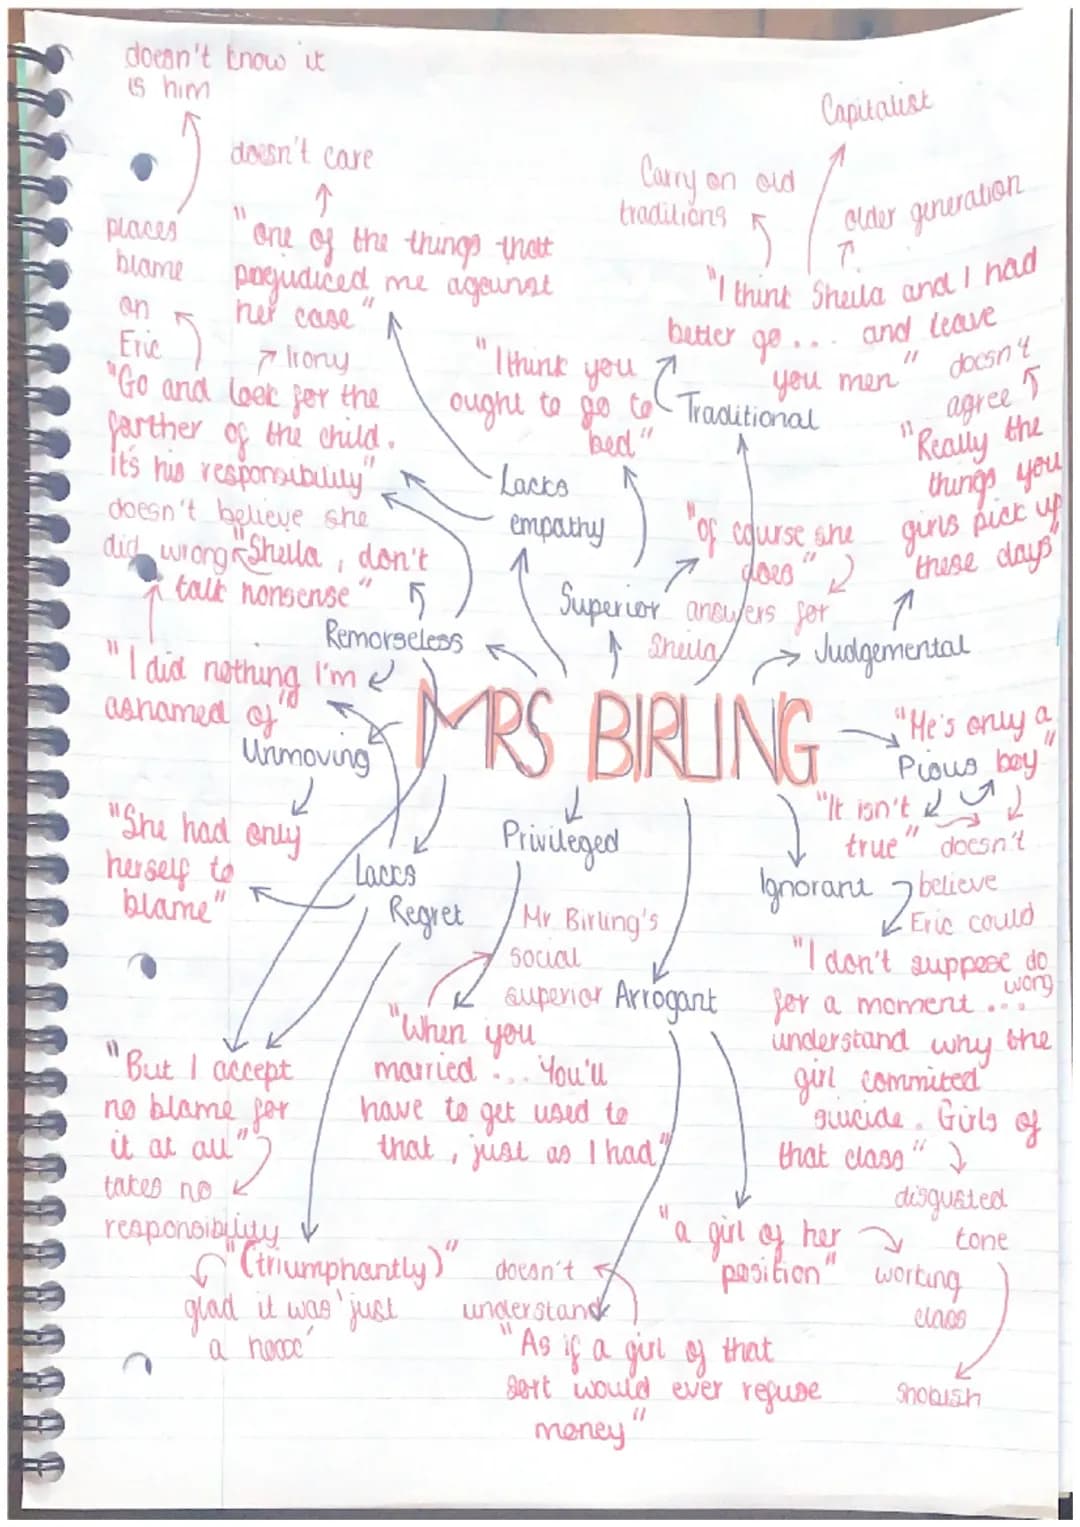 doesn't know it
is him
doesn't care
Capitalist
Carry on old
traditions
older generation
places
blame
on
Eric
"one of the things that
prejudiced me against
her case"
Irony
"I think Sheila and I had
better go... and leave
you men"
"I think you
ought to go to
bed"
Traditional
doesn't
agree
"Go and look for the
farther of the child.
it's his responsibility"
"Really the
things you
girls pick up
these days"
Lacks
empathy
doesn't believe she
did wrong
"Sheila, don't
talk nonsense"
"Of course she
does"
Superior
answers for
Sheila
Remorseless
Judgemental
"I did nothing I'm
ashamed of"
Unmoving
MRS BIRLING
"He's only a
boy"
Pious
"It isn't
true"
doesn't
believe
Eric could
do
wrong
"She had only
herself to
blame"
Lacks
Regret
Privileged
Ignorant
Mr Birling's
social
superior
Arrogant
"I don't suppose
for a moment ...
understand why the
girl commited
suicide. Girls of
that class"
"When you
married ... You'll
have to get used to
that, just as I had"
"But I accept
no blame for
it at all"
takes no
responsibility
disgusted
tone
"a girl of her
position"
working
class
snobish
"(triumphantly)"
glad it was 'just
a hoax'
doesn't
understand
"As if a girl of that
sort would ever refuse
money"